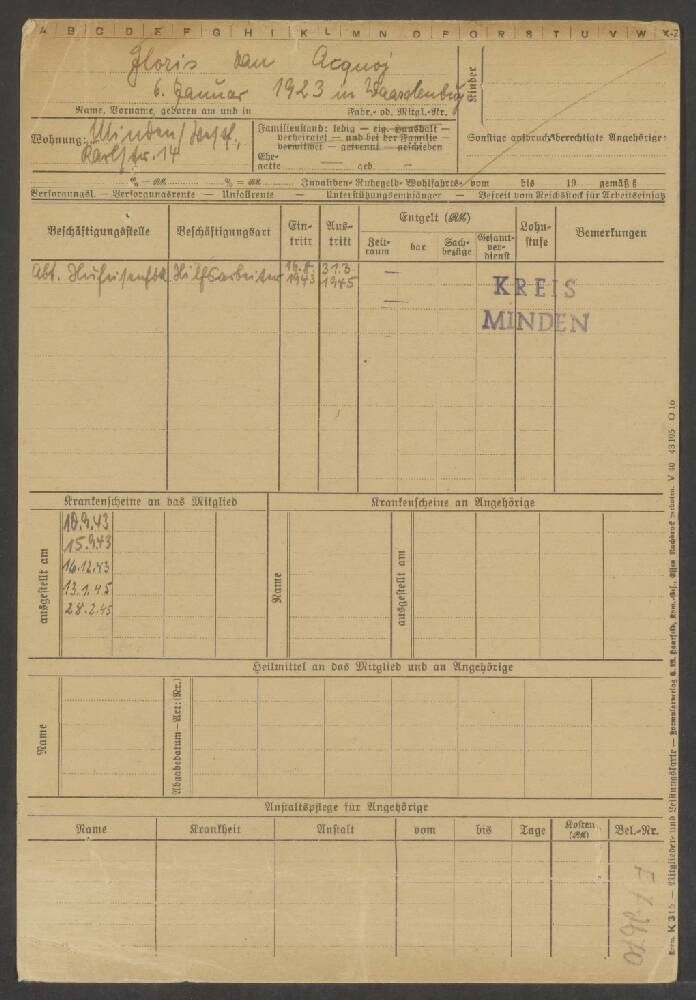 A B C D E F G H I K L M N O P Q R S T U V W X-Z
Floris van Acquoj
6. Januar 1923 in
Name, Vorname, geboren am und in Fabr.- od. Mitgl.-Nr.
Kinder
Wohnung: Minden/Westf.,
Karlstr. 14
Familienstand: ledig — eig. Haushalt —
verheiratet — und bei der Familie —
verwitwet — getrennt — geschieden
Ehe-
gatte geb.
Sonstige anspruchsberechtigte Angehörige:
% = RM. % = RM. Invaliden- Ruhegeld- Wohlfahrts- vom bis 19 gemäß §
Versorgungsl. — Versorgungsrente — Unfallrente — Unterstützungsempfänger — Befreit vom Reichsstock für Arbeitseinsatz
Beschäftigungsstelle Beschäftigungsart Ein-
tritt Aus-
tritt Entgelt (RM) Lohn-
stufe Bemerkungen
Zeit-
raum bar Sach-
bezüge Gesamt-
ver-
dienst
Abt. Hilfsarbeiter 1943 31.3.
1945
KREIS
MINDEN
Krankenscheine an das Mitglied Krankenscheine an Angehörige
ausgestellt am
10.9.43
15.9.43
16.12.43
13.1.45
28.2.45
Name
ausgestellt am
Heilmittel an das Mitglied und an Angehörige
Name
Abgabedatum—Art:(Nr.)
Anstaltspflege für Angehörige
Name Krankheit Anstalt vom bis Tage Kosten
(RM) Bel.-Nr.
Form. K 315 — Mitglieder- und Leistungskarte — Formularverlag
Nachdruck verboten. V 40 43195 O 16